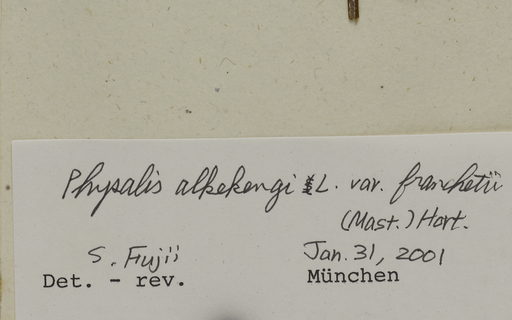 Physalis alkekengi L. var. franchetii
(Mast.) Hort.
S. Fujii Jan. 31, 2001
Det. - rev. München